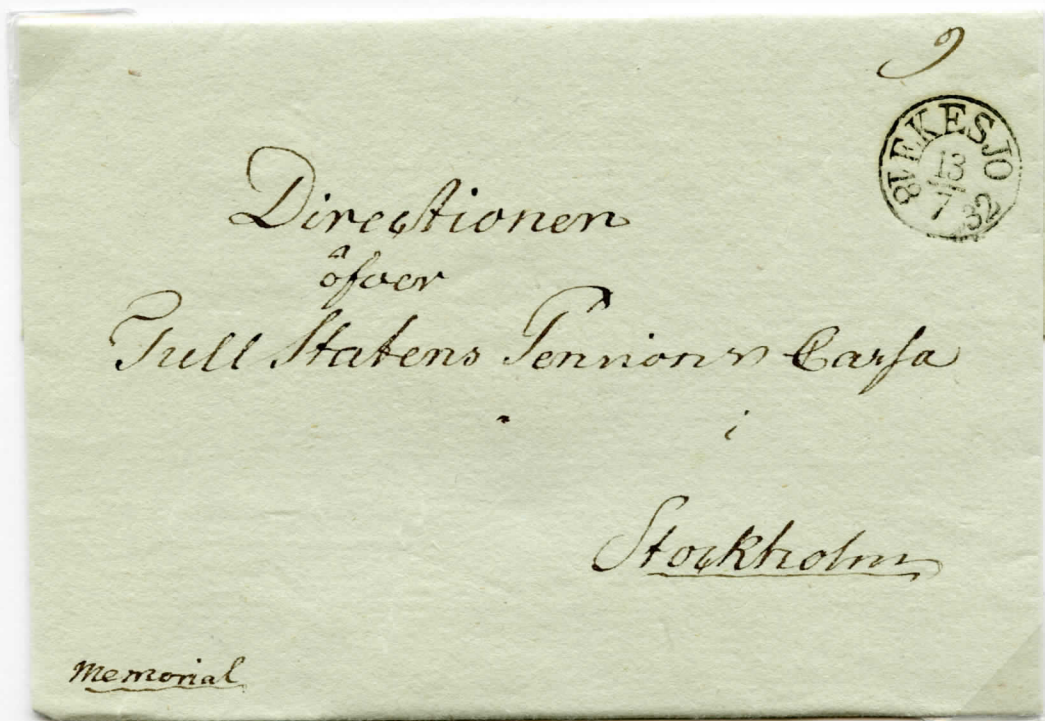 9
EKESJO
13
7
18 32
Directionen
öfver
Tull Statens Pension's Cassa
i
Stockholm
Memorial